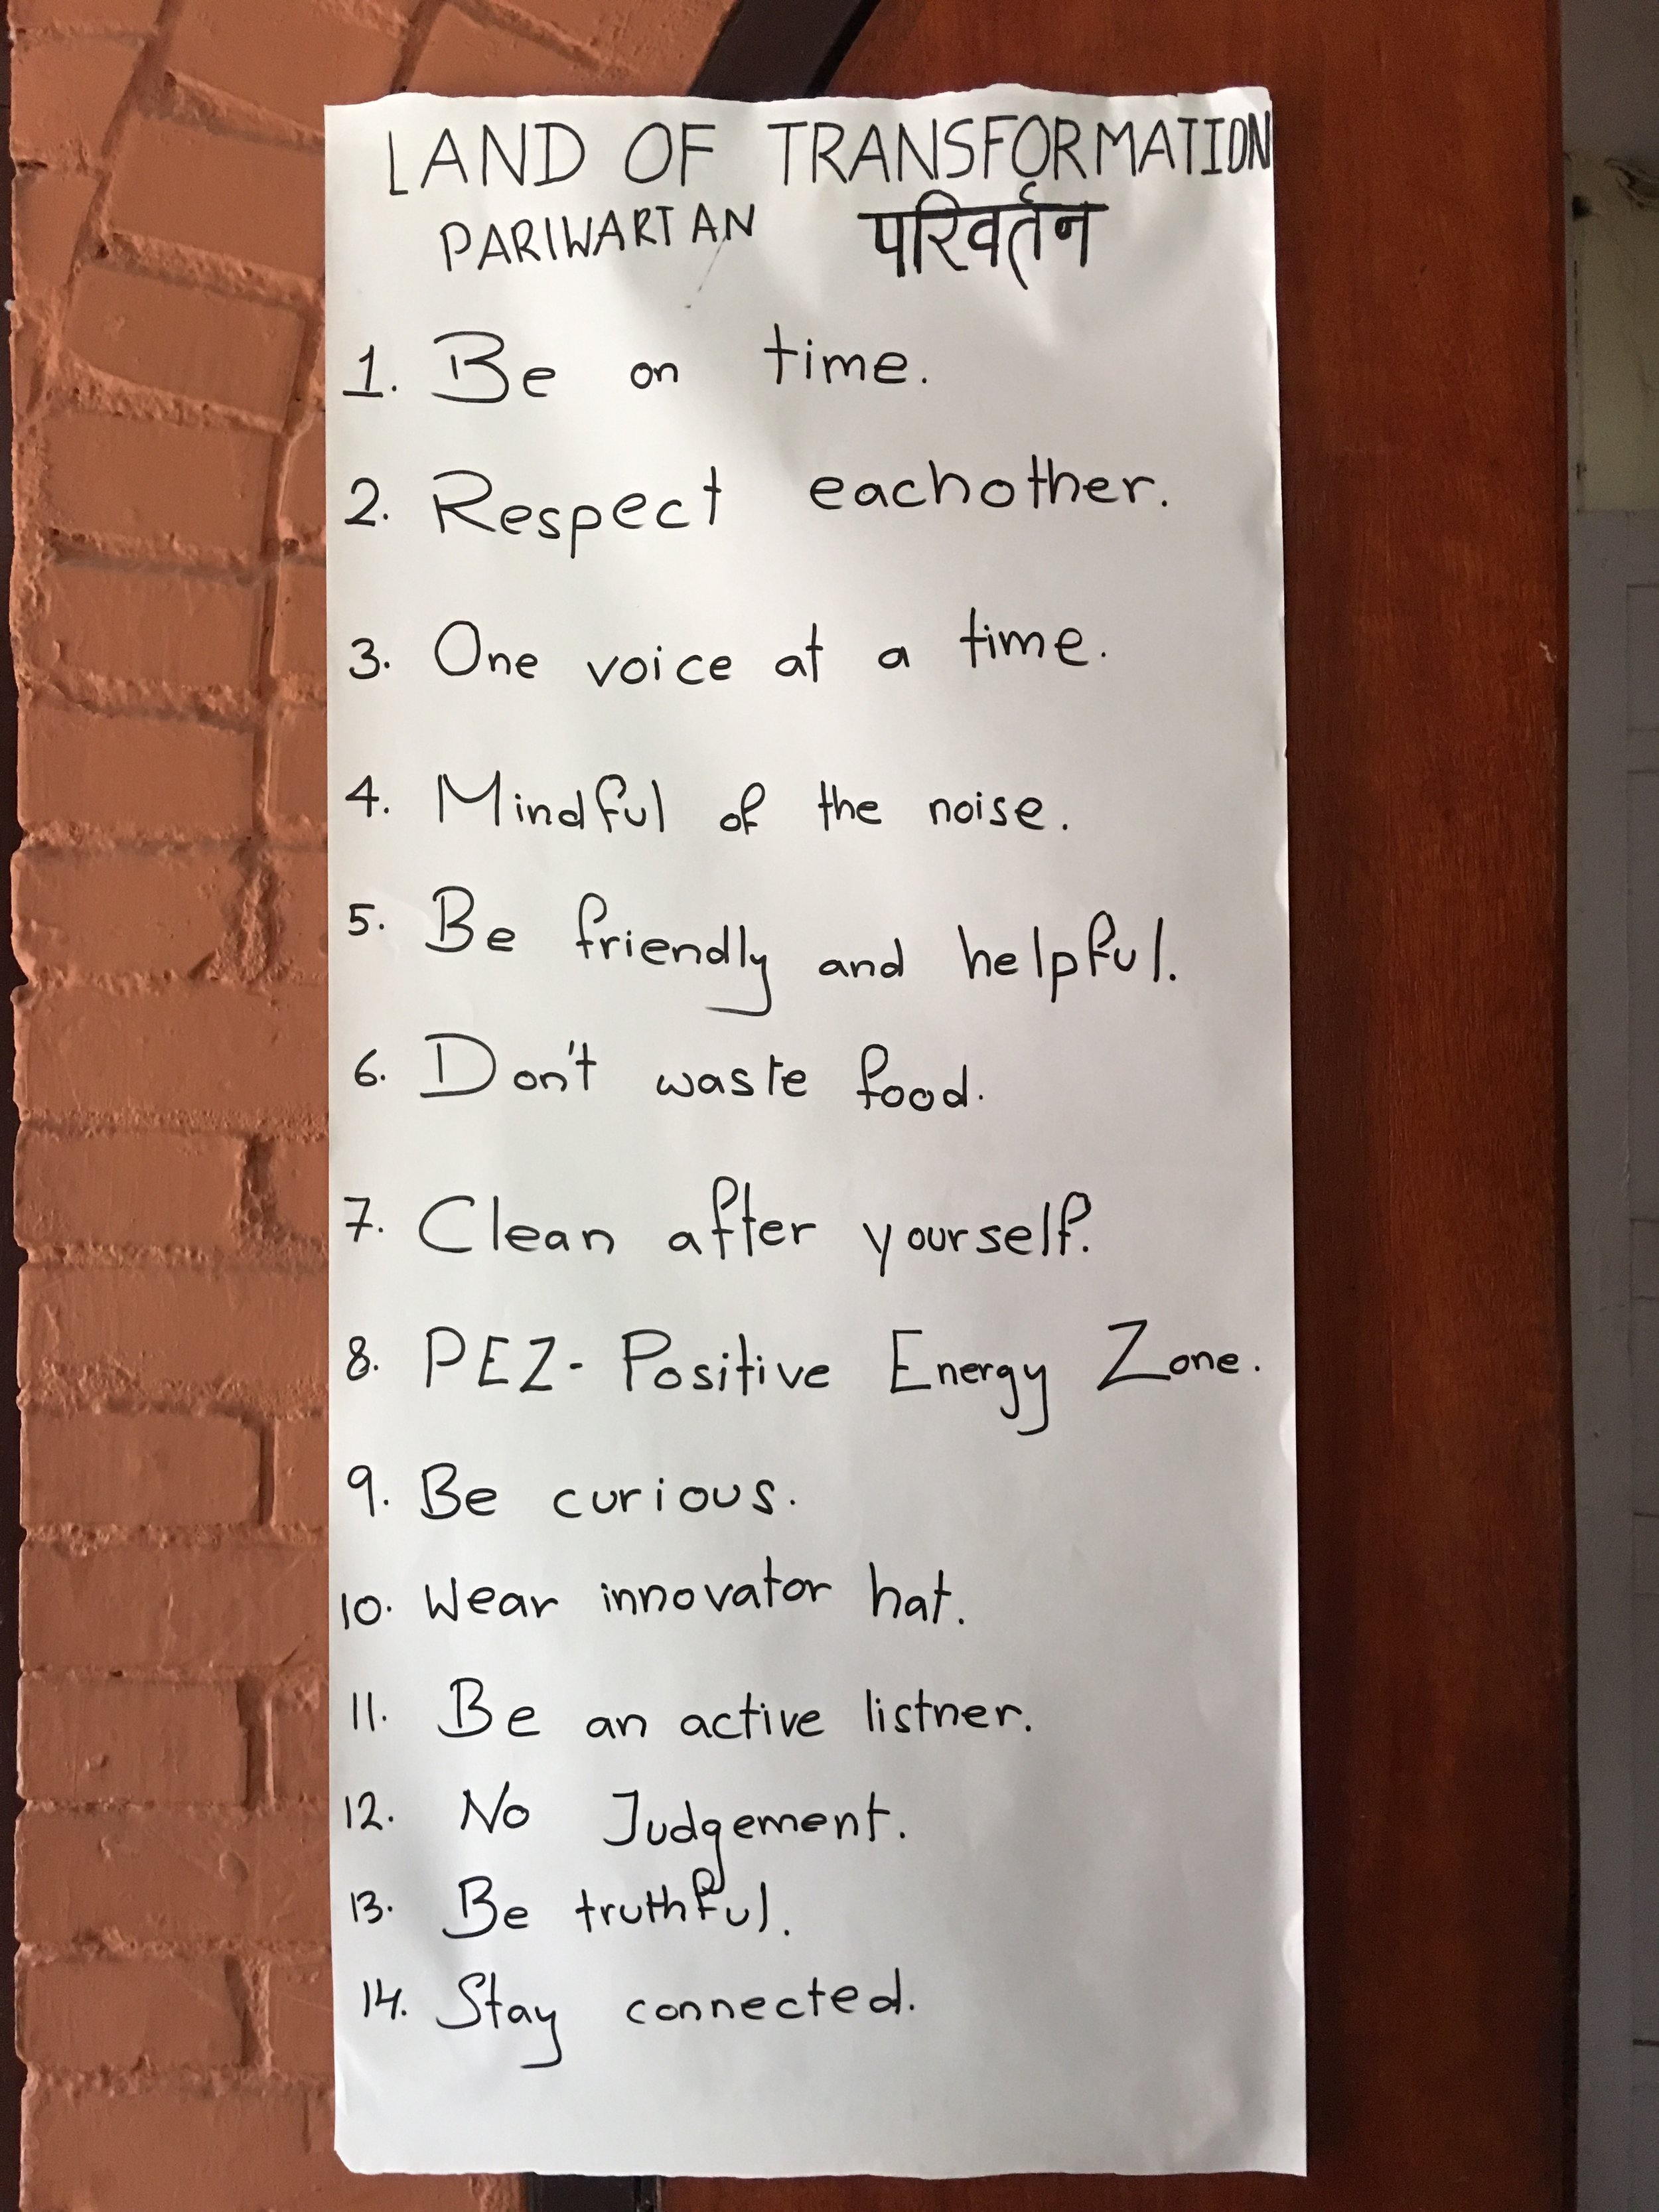 LAND OF TRANSFORMATION
PARIWARTAN परिवर्तन
1. Be on time.
2. Respect eachother.
3. One voice at a time.
4. Mindful of the noise.
5. Be friendly and helpful.
6. Don't waste food.
7. Clean after yourself.
8. PEZ- Positive Energy Zone.
9. Be curious.
10. Wear innovator hat.
11. Be an active listner.
12. No Judgement.
13. Be truthful.
14. Stay connected.